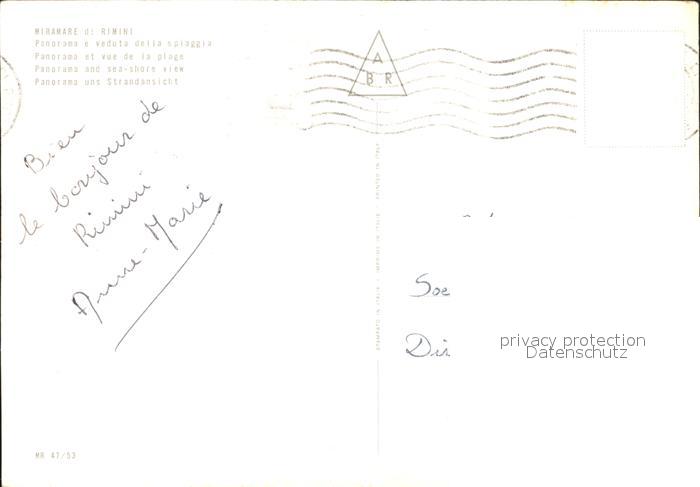 MIRAMARE di RIMINI
Panorama e veduta della spiaggia
Panorama et vue de la plage
Panorama and sea-shore view
Panorama uns Strandansicht
A
B R
Bien
le bonjour de
Rimini
Anne-Marie
STAMPATO IN ITALIA - IMPRIMÉ IN ITALIE - PRINTED IN ITALY
Soe
Dir
privacy protection
Datenschutz
MR 47/53